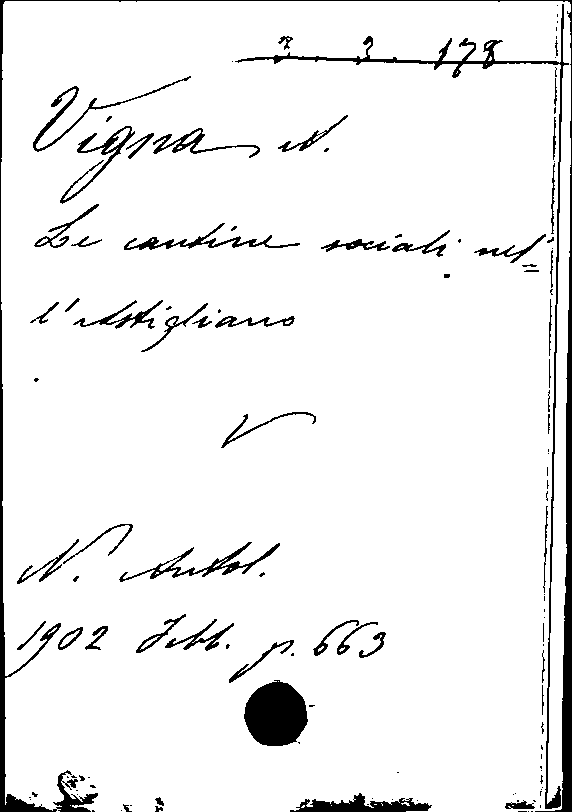 2. 3. 178
Vigna N.
Le cantine sociali nel=
l'Astigliano
V
N. Antol.
1902 Febb. p. 663